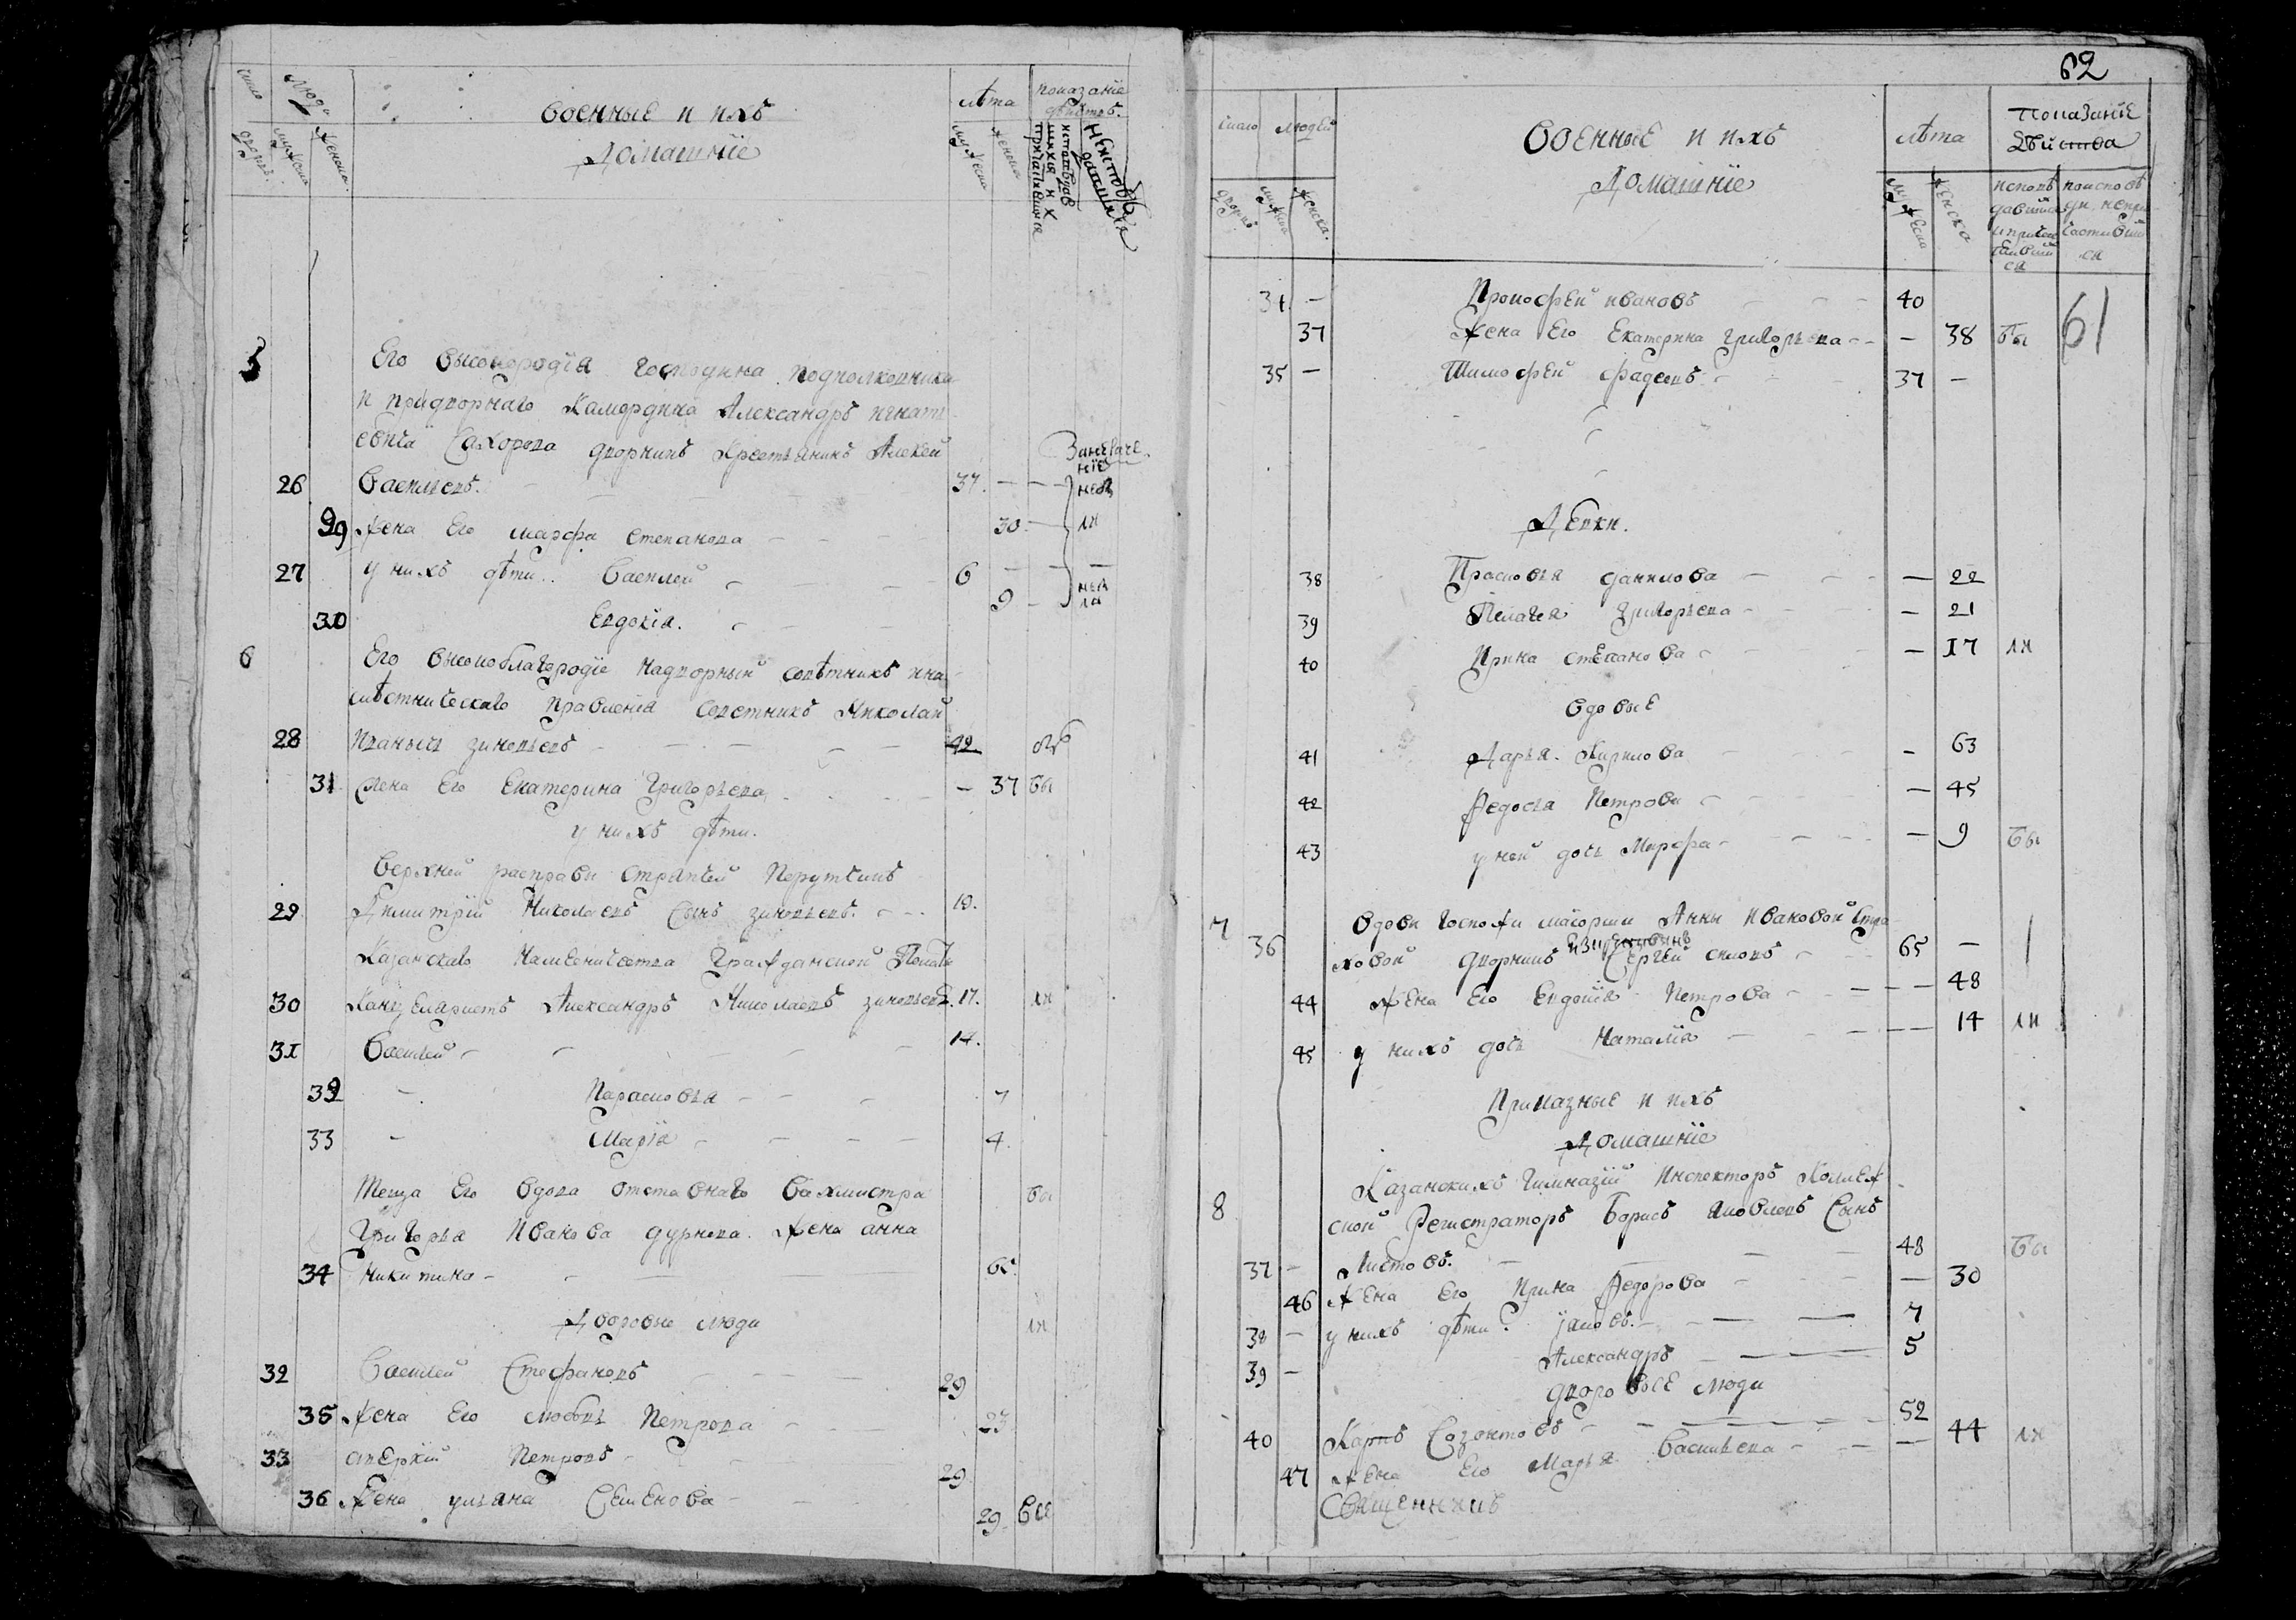 число
Люди
дворовъ.
мужеска
женска.
военные и ихъ
Домашнїе
лѣта
мужеска
женска
показанїе
дѣйствъ.
5
Его высокородїя господина подполковника
и придворнаго Камердина Александръ игнат
евича Сахорова дворникъ Крестьянинъ Алексей
Занебытiе
26 Васильевъ. 37. — — не
29 жена Его марфа степанова — 30 — ли
27 у нихъ дѣти.. Василей 6 — — —
30 Евдокїя. 9 — не ли
6 Его высокоблагородїе надворный совѣтникъ и на
мѣстническаго правленїя советникъ Николай
28 Иванычь зиновьевъ — 42 об
31 жена Его Екатерина Григорьева — 37 бы
у нихъ дѣти.
верхней расправы стряпчей
29 Димитрїй Николаевъ Сынъ зиновьевъ. 19.
Казанскаго Намѣсничества Гражданской Полаты
30 Канцеляристъ Александръ Николаевъ зиновьевъ. 17. ли
31 Василей 14.
32 — Парасковья — 7
33 — Марїя — 4.
Теща Его вдова отставнаго вахмистра бы
Григорья Иванова дурнова. жена анна
34 Никитина — 65
Дворовые люди ли
32 Василей Стефановъ 29
35 жена Его любовь Петрова 23
33 аверкїй Петровъ 29
36 жена ульяна Семенова 29. все
62
число людей
дворовъ
мужеска
женска.
военные и ихъ
Домашнїе
лѣта
мужеска
женска
Показанїе
дѣйства
исповѣ
давшїя
и причас
тившїи
ся
поисповѣ
ди непри
частивши
ся
34. — Прокофей ивановъ — 40
37 жена Его Екатерина григорьева — 38 бы 61
35 — Тимофей фадеевъ. 37 —
Девки.
38 Прасковья данилова — 22
39 Пелагея григорьева — 21
40 Ирина степанова — 17 ли
вдовые
41 Дарья. Кирилова — 63
42 Федосья Петрова — 45
43 у ней дочь Марфа — 9 бы
7 вдовы госпожи маiорши Анны Ивановой Стра
36 ховой дворникъ Сергей 65 —
44 жена Его Евдокїя Петрова — 48
45 у нихъ дочь Наталїя — 14 ли
Приказные и ихъ
Домашнїе
8 Казанскихъ Гимназїй Инспекторъ Коллеж
ской Регистраторъ Борисъ яковлевъ Сынъ
37 — Листовъ. — 48 бы
46 жена Его Ирина Федорова — 30
38 — у нихъ дѣти. яковъ. — 7
39 — Александръ — 5
дворовые люди
40 Карпъ Созонтовъ — 52
47 жена Его Марья Васильева — 44 ли
Священникъ